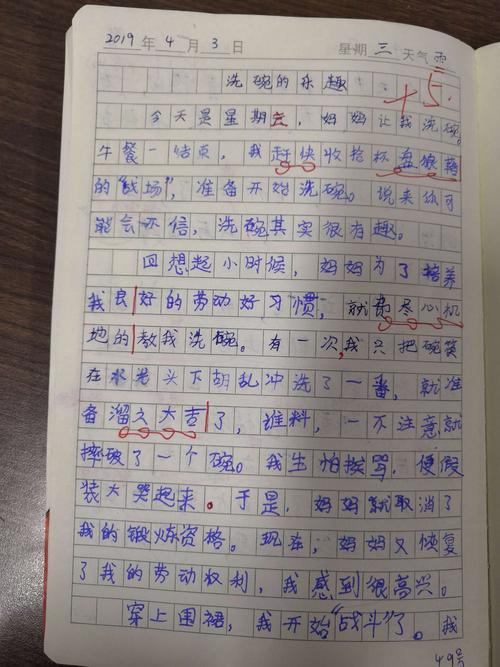 2019年4月3日 星期三 天气雨
洗碗的乐趣
+5.
今天是星期三，妈妈让我洗碗。
午餐一结束，我赶快收拾杯盘狼藉
的“战场”，准备开始洗碗。说来你可
能会不信，洗碗其实很有趣。
回想起小时候，妈妈为了培养
我良好的劳动好习惯，就费尽心机
地的教我洗碗。有一次，我只把碗筷
在水龙头下胡乱冲洗了一番，就准
备溜之大吉了，谁料，一不注意就
摔破了一个碗。我生怕挨骂，便假
装大哭起来。于是，妈妈就取消了
我的锻炼资格。现在，妈妈又恢复
了我的劳动权利，我感到很高兴。
穿上围裙，我开始“战斗”了。我
49号